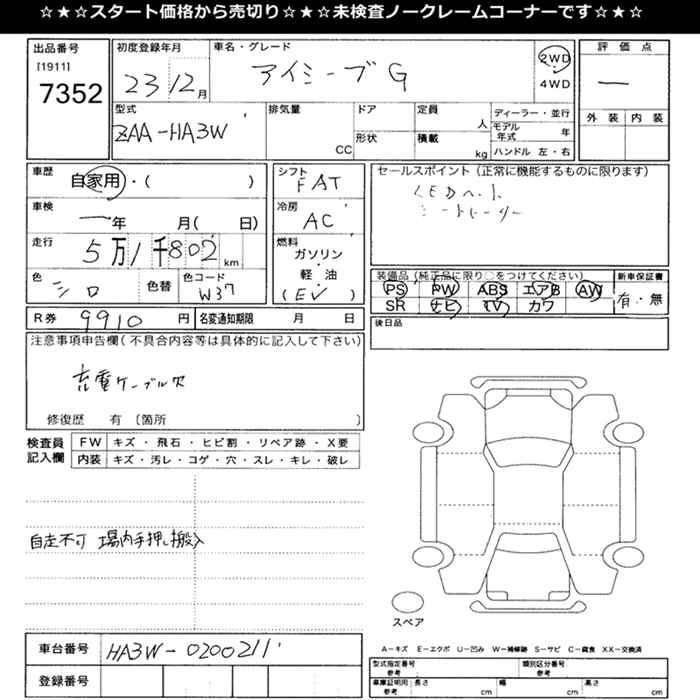 ☆★☆★スタート価格から売切り☆★☆★未検査ノークレームコーナーです☆★☆
出品番号 初度登録年月 車名・グレード 2WD 評価点
[1911] 23 12月 アイミーブG 4WD —
7352
型式 排気量 ドア 定員 ディーラー・並行 外装 内装
ZAA-HA3W CC 形状 人 モデル年式 年
積載 kg ハンドル 左・右
車歴 自家用・( ) シフト FAT セールスポイント(正常に機能するものに限ります)
車検 一年 月( 日) 冷房 AC LEDヘッド
シートヒーター
走行 5万1千802km 燃料 ガソリン
軽・油
(EV)
色 シロ 色替 色コード W37 装備品(純正品に限り○をつけてください) 新車保証書
PS PW ABS エアB AW 有・無
SR ナビ TV カワ
R券 9910円 名変通知期限 月 日 後日品
注意事項申告欄(不具合内容等は具体的に記入して下さい)
充電ケーブル欠
修復歴 有〔箇所 〕
検査員記入欄 FW キズ・飛石・ヒビ割・リペア跡・X要
内装 キズ・汚レ・コゲ・穴・スレ・キレ・破レ
自走不可 場内手押し搬入
スペア
車台番号 HA3W-0200211
登録番号
A-キズ E-エクボ U-凹み W-補修跡 S-サビ C-腐食 XX-交換済
型式指定番号 参考 類別区分番号 参考
車庫証明用 参考 長さ cm 幅 cm 高さ cm